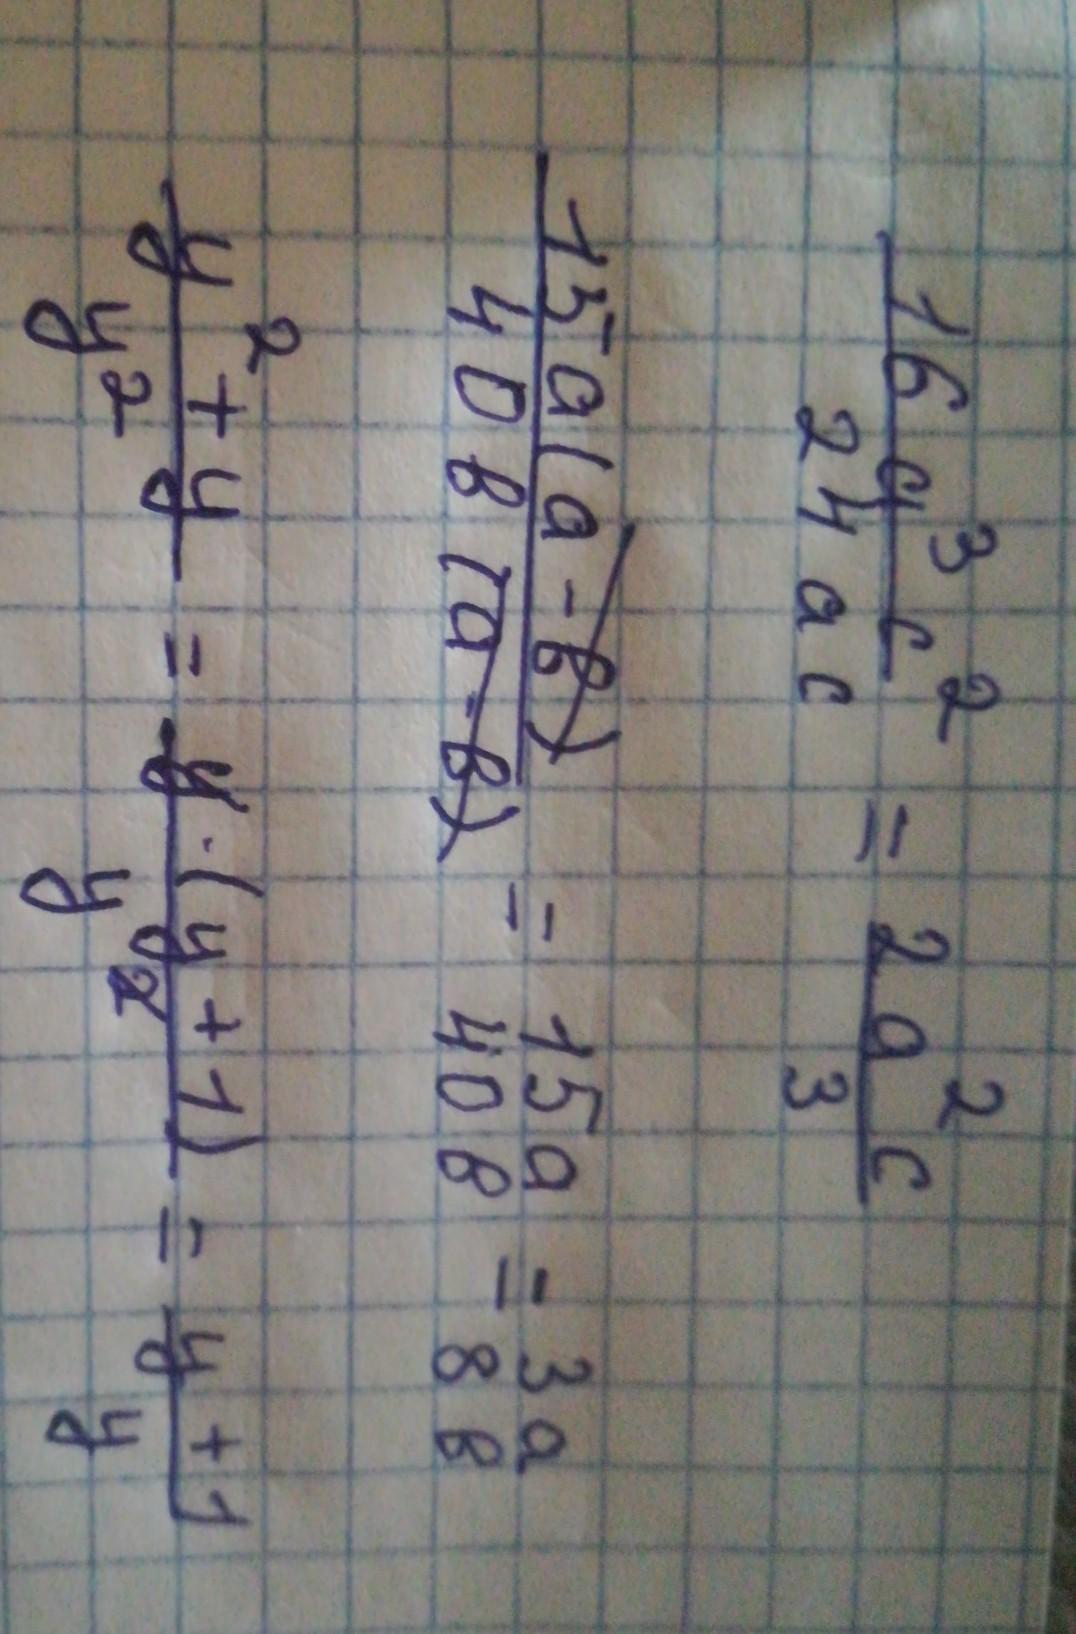 16a³c² / 24ac = 2a²c / 3
15a(a-в) / 40в(a-в) = 15a / 40в = 3a / 8в
y²+y / y² = y·(y+1) / y² = y+1 / y